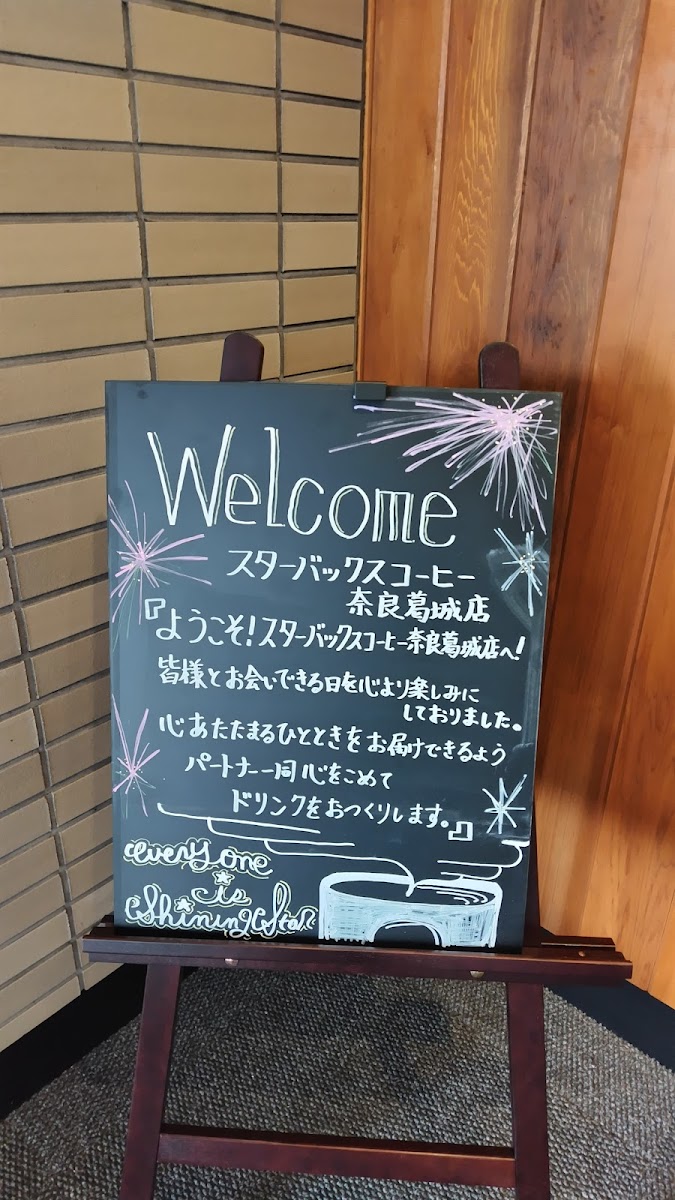 Welcome
スターバックスコーヒー
奈良葛城店
『ようこそ!スターバックスコーヒー奈良葛城店へ!
皆様とお会いできる日を心より楽しみに
しておりました。
心あたたまるひとときをお届けできるよう
パートナー同心をこめて
ドリンクをおつくりします。』
every one
is
Shining Star